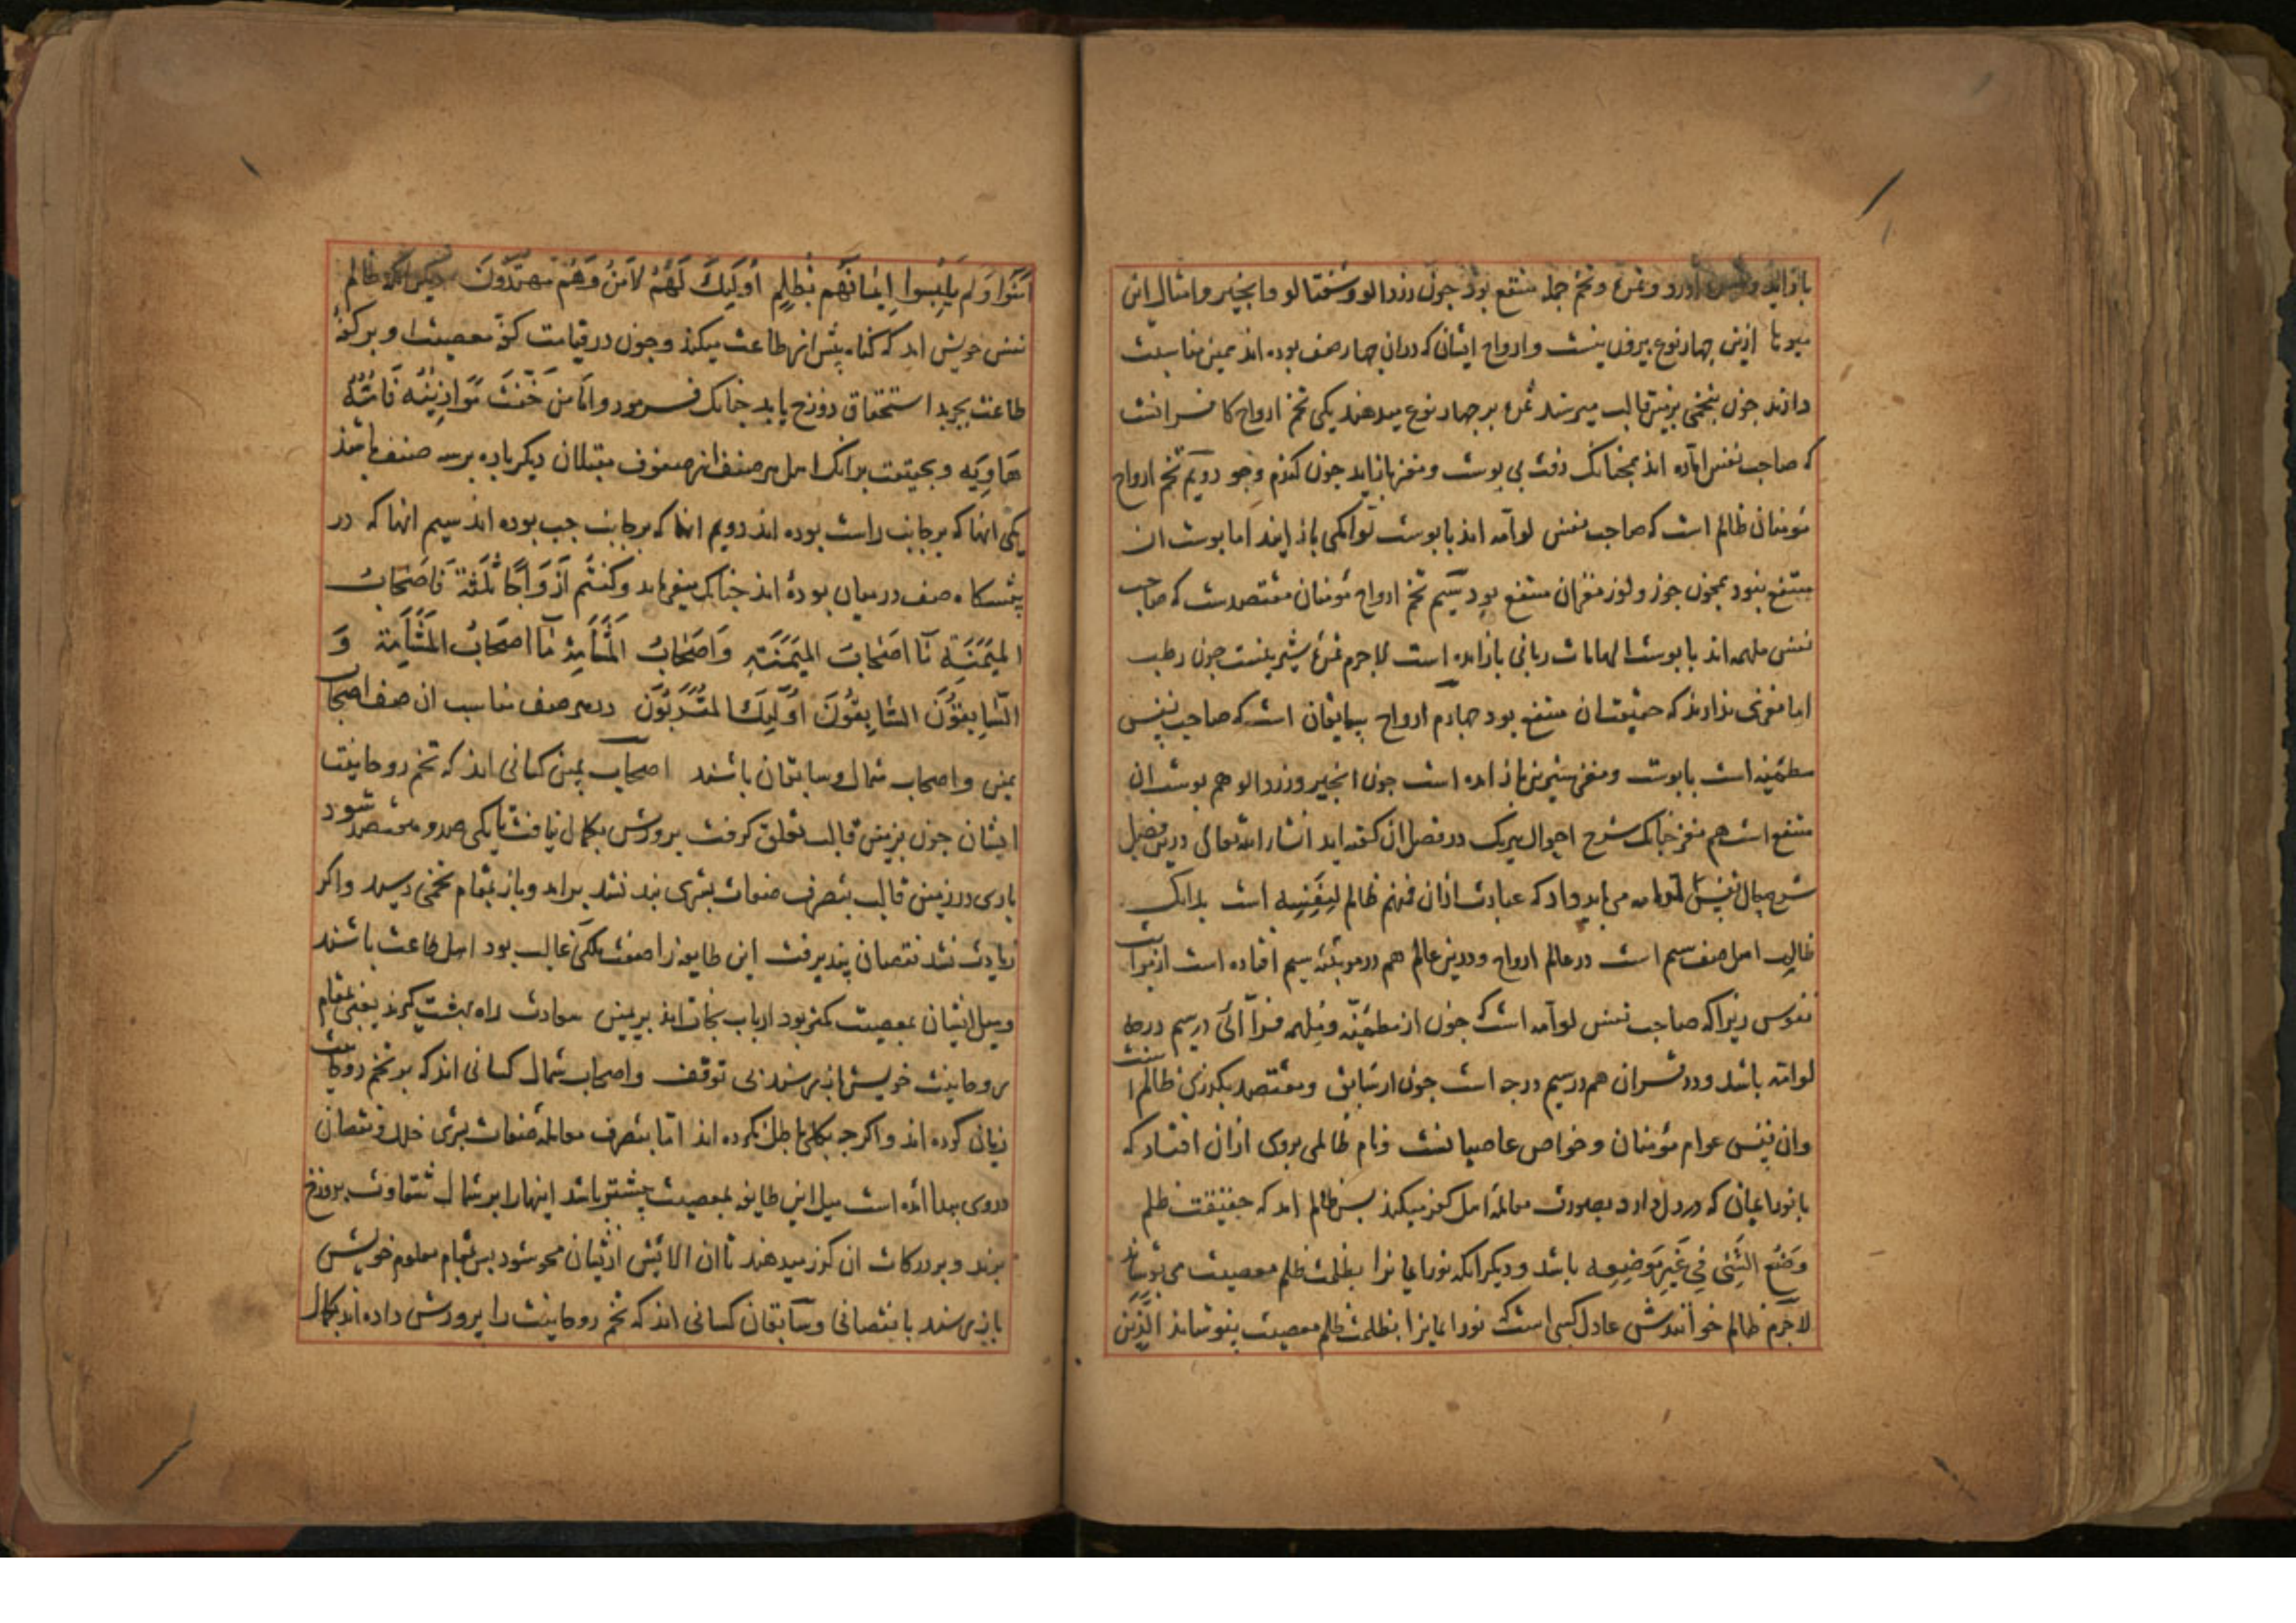 باز آید و پوست آورد و ثمره و تخم جمله منتفع بود چون زردالو و شفتالو و انجیر و امثال این
میوها ازین چهار نوع بیرون نیست و ارواح ایشان که دران چهار صف بوده اند همین مناسبت
دارند چون بتخمی بزمین قالب میرسند ثمره بر چهار نوع میدهند یکی تخم ارواح کافرانست
که صاحب نفس اماره اند همچنانک رفت بی پوست و مغز باز آید چون کندم و جو دویم تخم ارواح
مؤمنان ظالم است که صاحب نفس لوامه اند با پوست لوامکی باز ایند اما پوست ان
منتفع نبود همچون جوز و لوز مغز ان منتفع بود سیم تخم ارواح مؤمنان مقتصدست که صاحب
نفس ملهمه اند با پوست الهامات ربانی باز امده است لاجرم ثمره شیرینست چون رطب
اما مغزی ندارند که حقیقت ان منتفع بود چهارم ارواح سابقان است که صاحب نفس
مطمئنه است با پوست و مغز شیرین باز امده است چون انجیر و زردالو هم پوست ان
منتفع است هم مغز چنانک شرح احوال هریک در فصل ان کفته اید انشاء الله تعالی درین فصل
شرح حال نفس لوامه می باید داد که عبارت ازان فمنهم ظالم لِنَفْسِه است بدانک
ظالم اهل صف سیم است در عالم ارواح و درین عالم هم در مرتبه سیم افتاده است از مراتب
نفوس زیرا که صاحب نفس لوامه است که چون از مطمئنه و ملهمه فرو آئی درسیم درجه
لوامه باشد و در قران هم در سیم درجه است چون از سابق و مقتصد بکذری ظالم است
وان نفس عوام مؤمنان و خواص عاصیانست و نام ظالمی بروی ازان افتاد که
با نور ایمان که در دل دارد بصورت معامله اهل کفر میکند پس ظالم اید که حقیقت ظلم
وَضْع الشَّیْ فِی غَیْرِ مَوْضِعِه باشد و دیکر انکه نور ایمانرا بظلمت ظلم معصیت می پوشاند
لاجرم ظالم خوانندش عادل کسی است که نور ایمانرا بظلمت ظلم معصیت بنوشاند الَّذین
آمَنُوا وَلَم یَلبِسوا اِیمانَهُم بِظُلمٍ اُولَئِکَ لَهُمُ الاَمنُ وَهُم مُهتَدُونَ دیکر انکه ظالم
نفس خویش اید که کناه بیش از طاعت میکند و چون در قیامت کفه معصیت او بر کفه
طاعت بچربد استحقاق دوزخ یابد چنانک فرمود وامّا من خَفَّت مَوَازِینُه فَاُمُّهُ
هَاوِیَه و بحقیقت بدانک اهل هر صف از صفوف مقبلان دیکر باره برسه صنف باشند
یکی انها که بر جانب راست بوده اند دویم انها که بر جانب چپ بوده اند سیم انها که در
پیشکاه صف در میان بوده اند چنانک میفرماید وَکُنتُم اَزوَاجًا ثَلٰثَة فَاَصحَابُ
المَیمَنَةِ مَا اَصحَابُ المَیمَنَةِ وَاَصحَابُ المَشأَمَةِ مَا اَصحَابُ المَشأَمَةِ وَ
السَّابِقُونَ السَّابِقُونَ اُولَئِکَ المُقَرَّبُونَ در هر صف مناسب ان صف اصحاب
یمین و اصحاب شمال و سابقان باشند اصحاب یمین کسانی اند که تخم روحانیت
ایشان چون بزمین قالب تعلق کرفت پرورش بکمال نیافت تا یکی صد و هفتصد شود
باری در زمین قالب بتصرف صفات بشری بند نشد براید و باز بمقام تخمی رسید و اکر
زیادت نشد نقصان پذیرفت این طایفه را صفت ملکی غالب بود اهل طاعت باشند
و میل ایشان بمعصیت کمتر بود ارباب نجات اند بر یمین سعادت راه بهشت کیرند یعنی بمقام
روحانیت خویش باز رسند بی توقف و اصحاب شمال کسانی اند که بر تخم روحانیت
زیان کرده اند و اکرچه بکلی باطل نکرده اند اما بتصرف معامله صفات بشری خلل و نقصان
دروی پیدا آمده است میل این طایفه بمعصیت بیشتر باشد اینها را بر شمال شقاوت بدوزخ
برند و بر درکات ان کذر میدهند تا ان الایش ازیشان محو شود پس بمقام معلوم خویش
باز رسند با نقصانی و سابقان کسانی اند که تخم روحانیت را پرورش داده اند بکمال